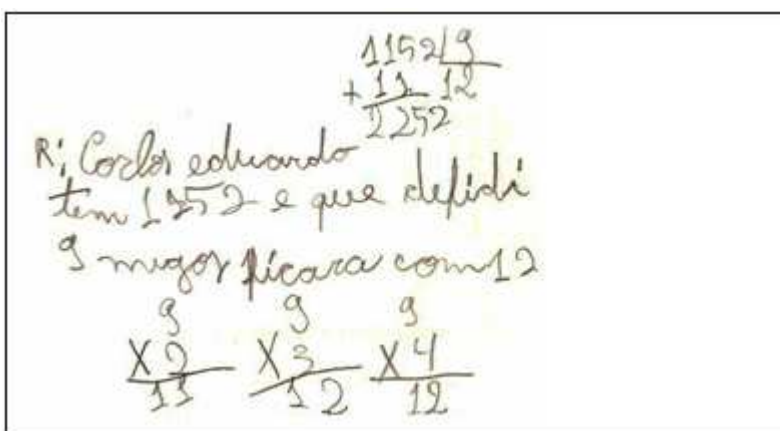 1152 9
+ 11 12
2252
R: Carlos eduardo
tem 1152 e que defidi
9 migos ficara com 12
9 9 9
X 2 X 3 X 4
11 12 12